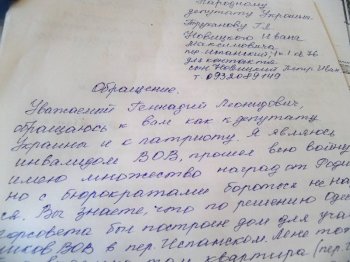 Народному
депутату Украины
Труханову Г.Л.
Новицкого Ивана
Максимовича,
пер. Испанский,
для контактов
сын Новицкий Петр Иван
т. 0932089149
Обращение.
Уважаемый Геннадий Леонидович,
обращаюсь к вам как к депутату
Украины и к патриоту. Я являюсь
инвалидом ВОВ, прошел всю войну
имею множество наград от Роди
но с бюрократами бороться не на
ся. Вы знаете, что по решению Одес
горсовета был построен дом для учас
ников ВОВ в пер. Испанском. Мне тож
квартира (пер.